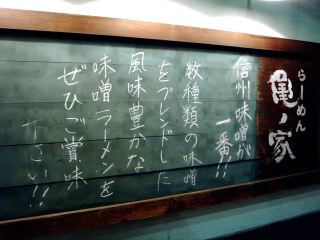 らーめん
亀ノ家
信州味噌が
一番!!
数種類の味噌
をブレンドした
風味豊かな
味噌ラーメンを
ぜひご賞味
下さい!!